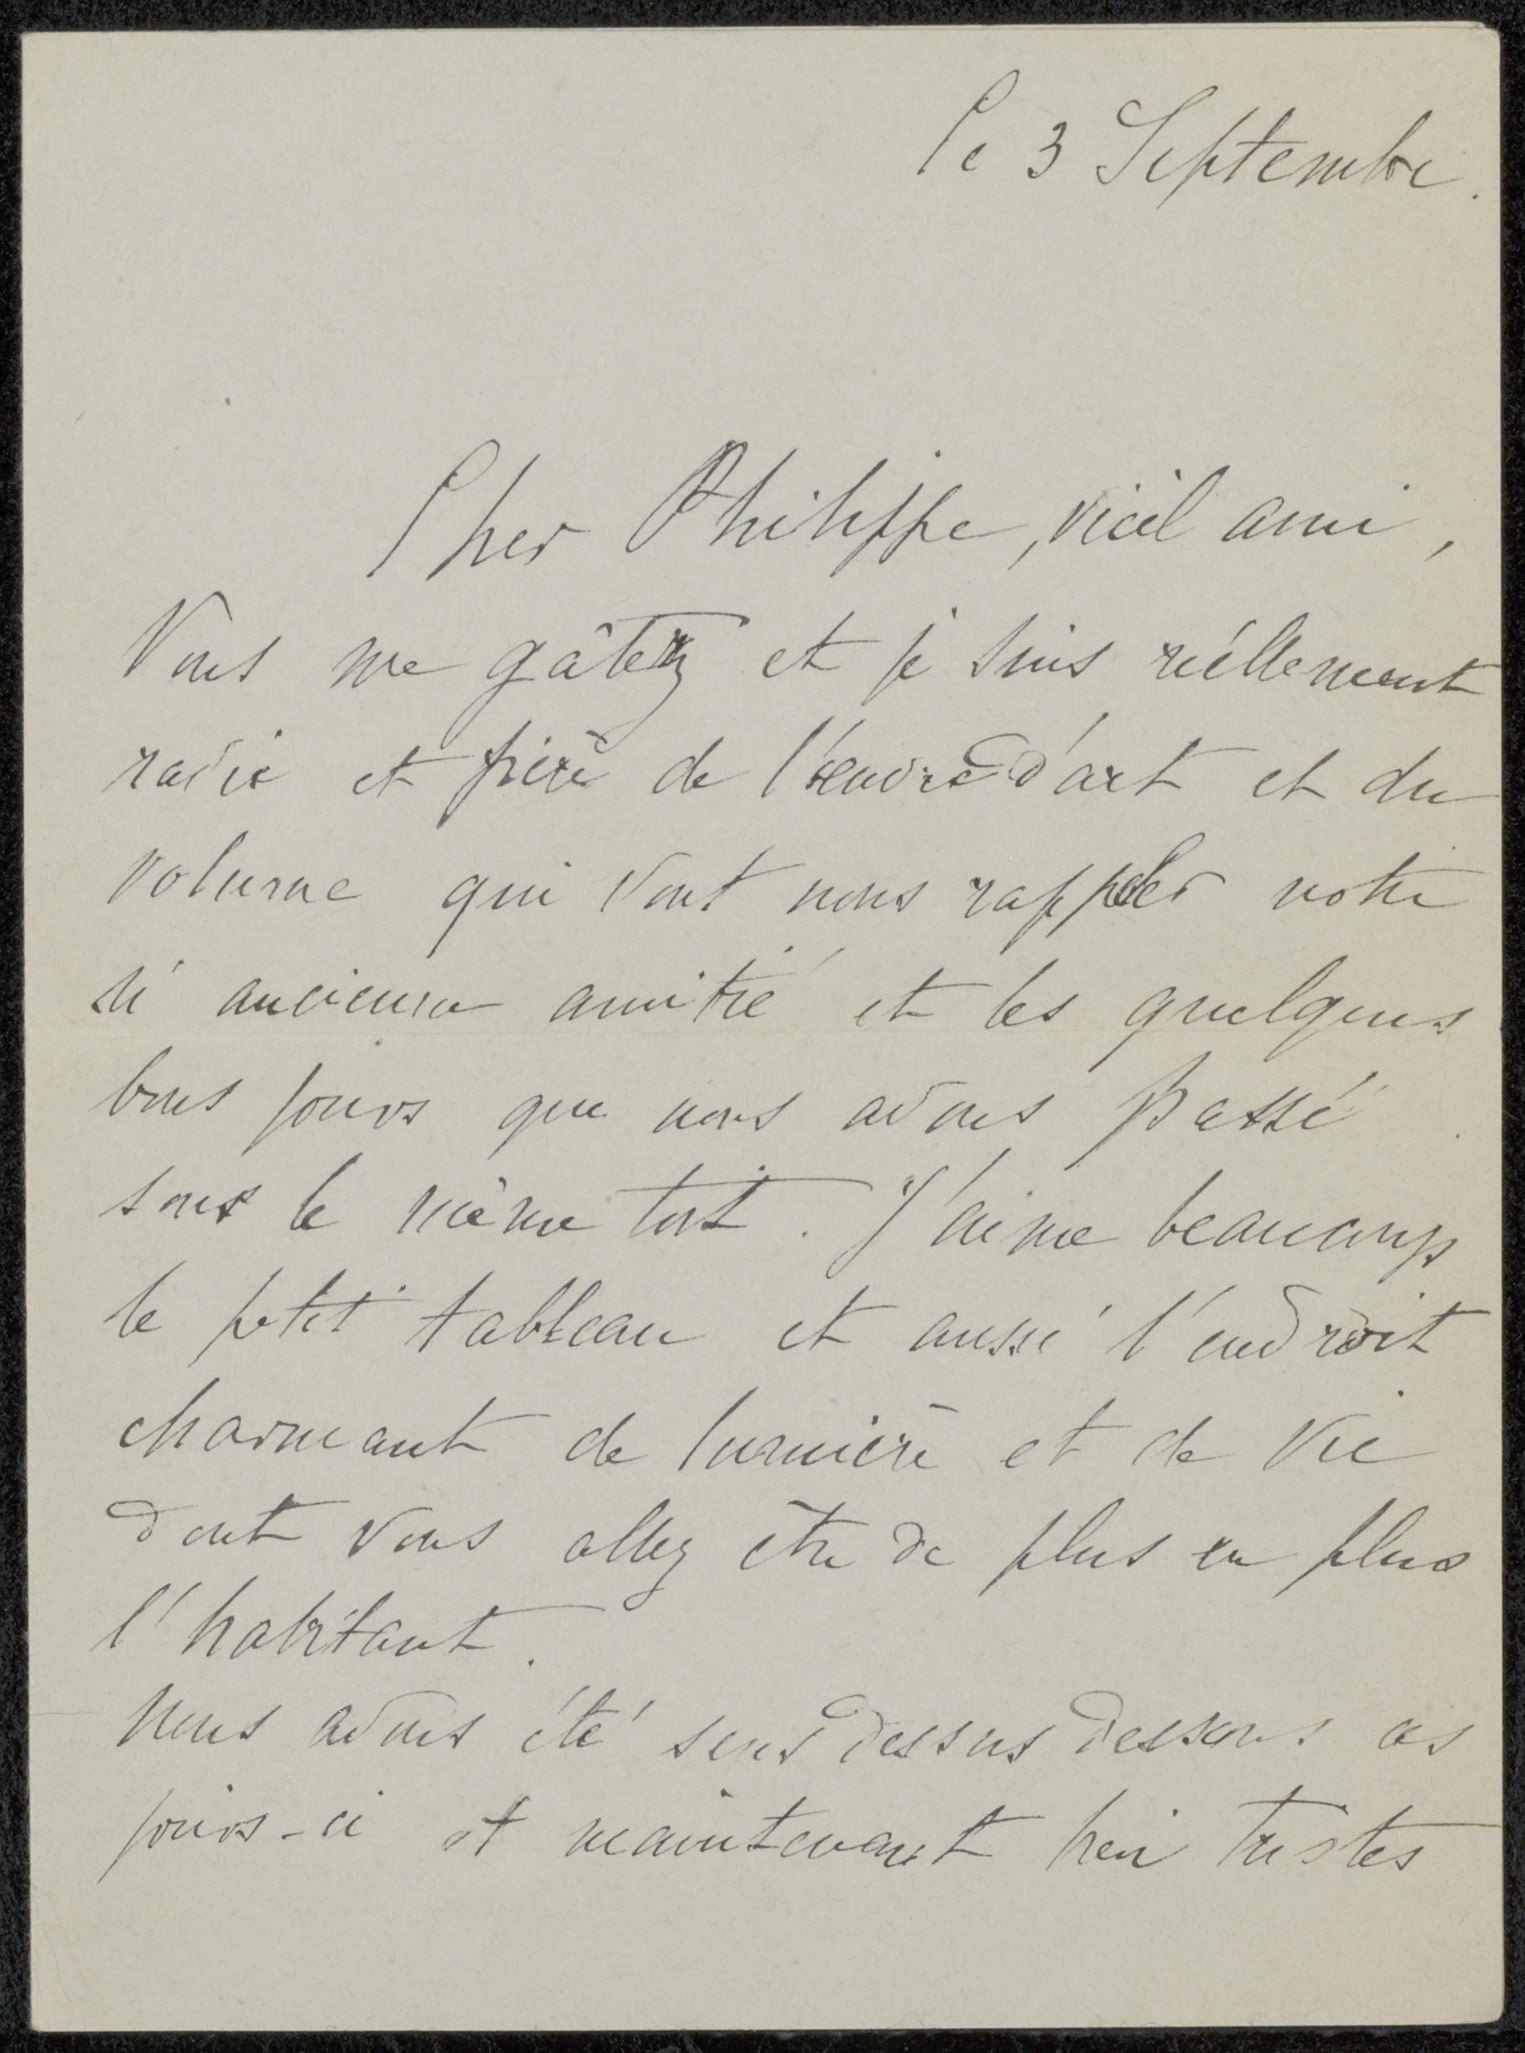 Le 3 Septembre.
Cher Philippe, vieil ami,
Vous me gâtez et je suis réellement
ravie et fière de l'œuvre d'art et du
volume qui vont nous rappeler notre
si ancienne amitié et les quelques
bons jours que nous avons passé
sous le même toit. J'aime beaucoup
le petit tableau et aussi l'endroit
charmant de lumière et de vie
dont vous allez être de plus en plus
l'habitant.
Nous avons été sens dessus dessous ces
jours-ci et maintenant bien tristes